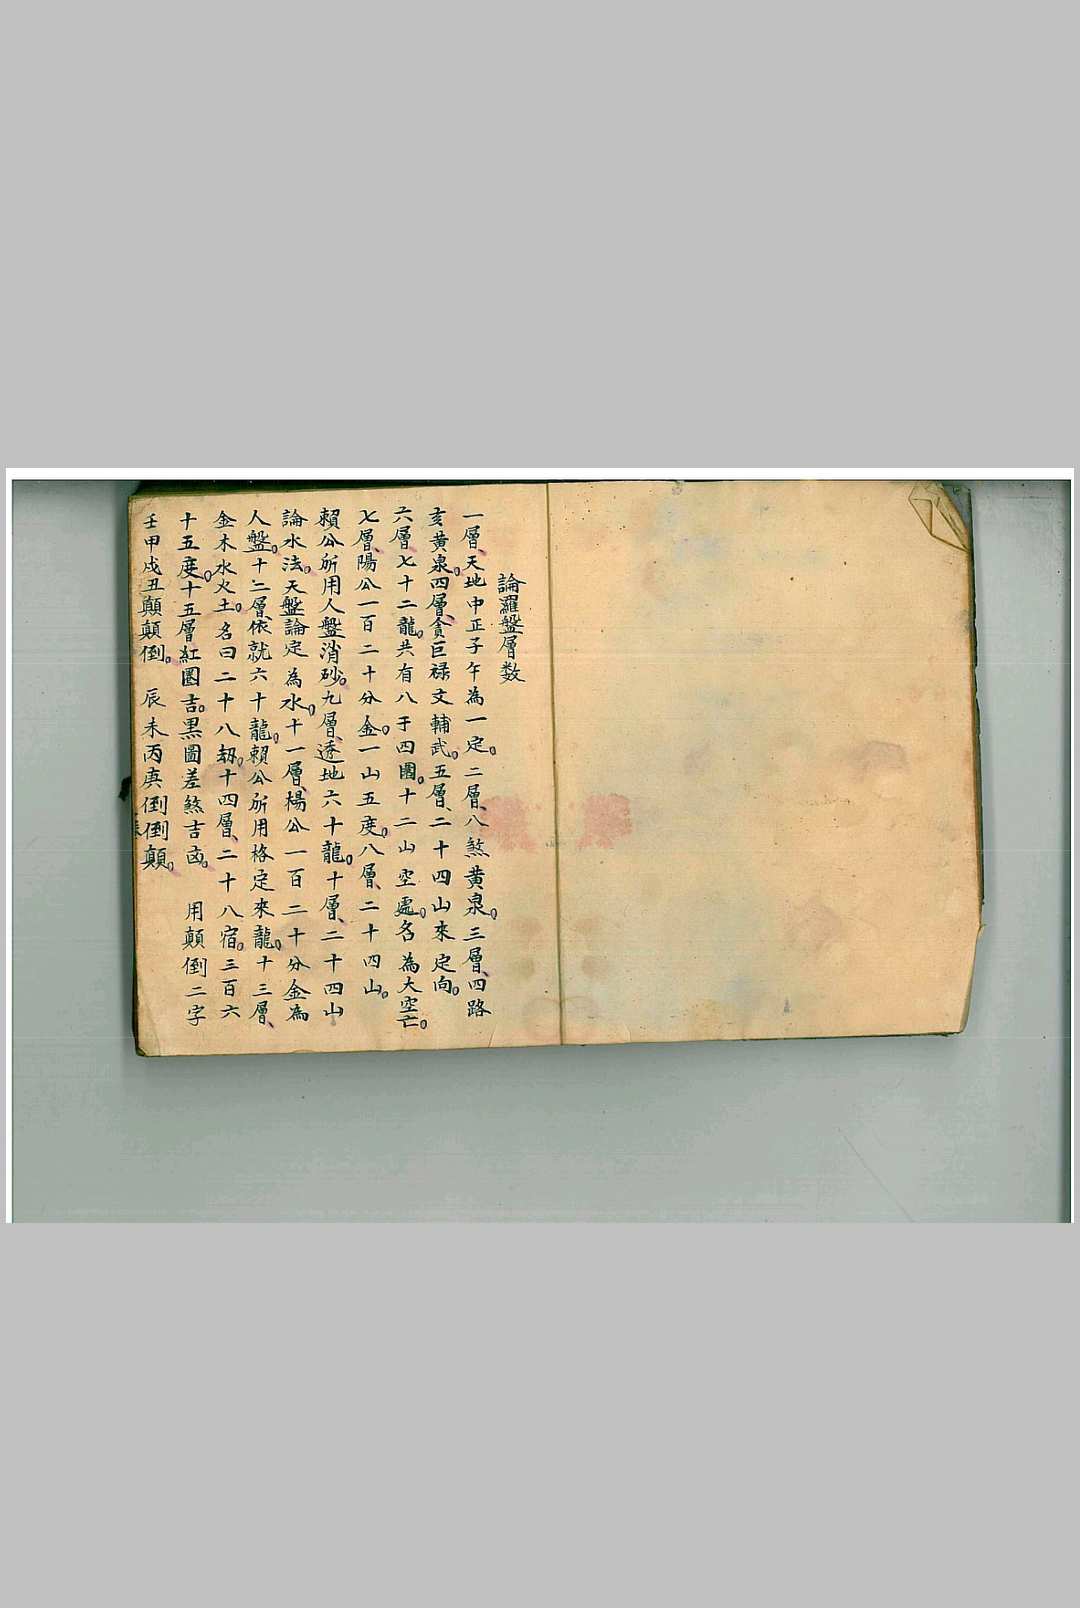 論羅盤層数
一層、天地中正子午為一定。二層、八煞黄泉。三層、四路
亥黄泉。四層、貪巨禄文輔武。五層、二十四山來定向。
六層七十二龍。共有八于四圍。十二山空處。名為大空亡。
七層、陽公一百二十分金。一山五度。八層、二十四山。
賴公所用人盤消砂。九層、透地六十龍。十層、二十四山
論水法。天盤論定為水。十一層、楊公一百二十分金為
人盤。十二層、依就六十龍。賴公所用格定來龍。十三層、
金木水火土。名曰二十八劫。十四層、二十八宿。三百六
十五度。十五層紅圏吉。黒圖差煞吉凶。 用顛倒二字
壬甲戌丑顛顛倒。 辰未丙庚倒倒顛。